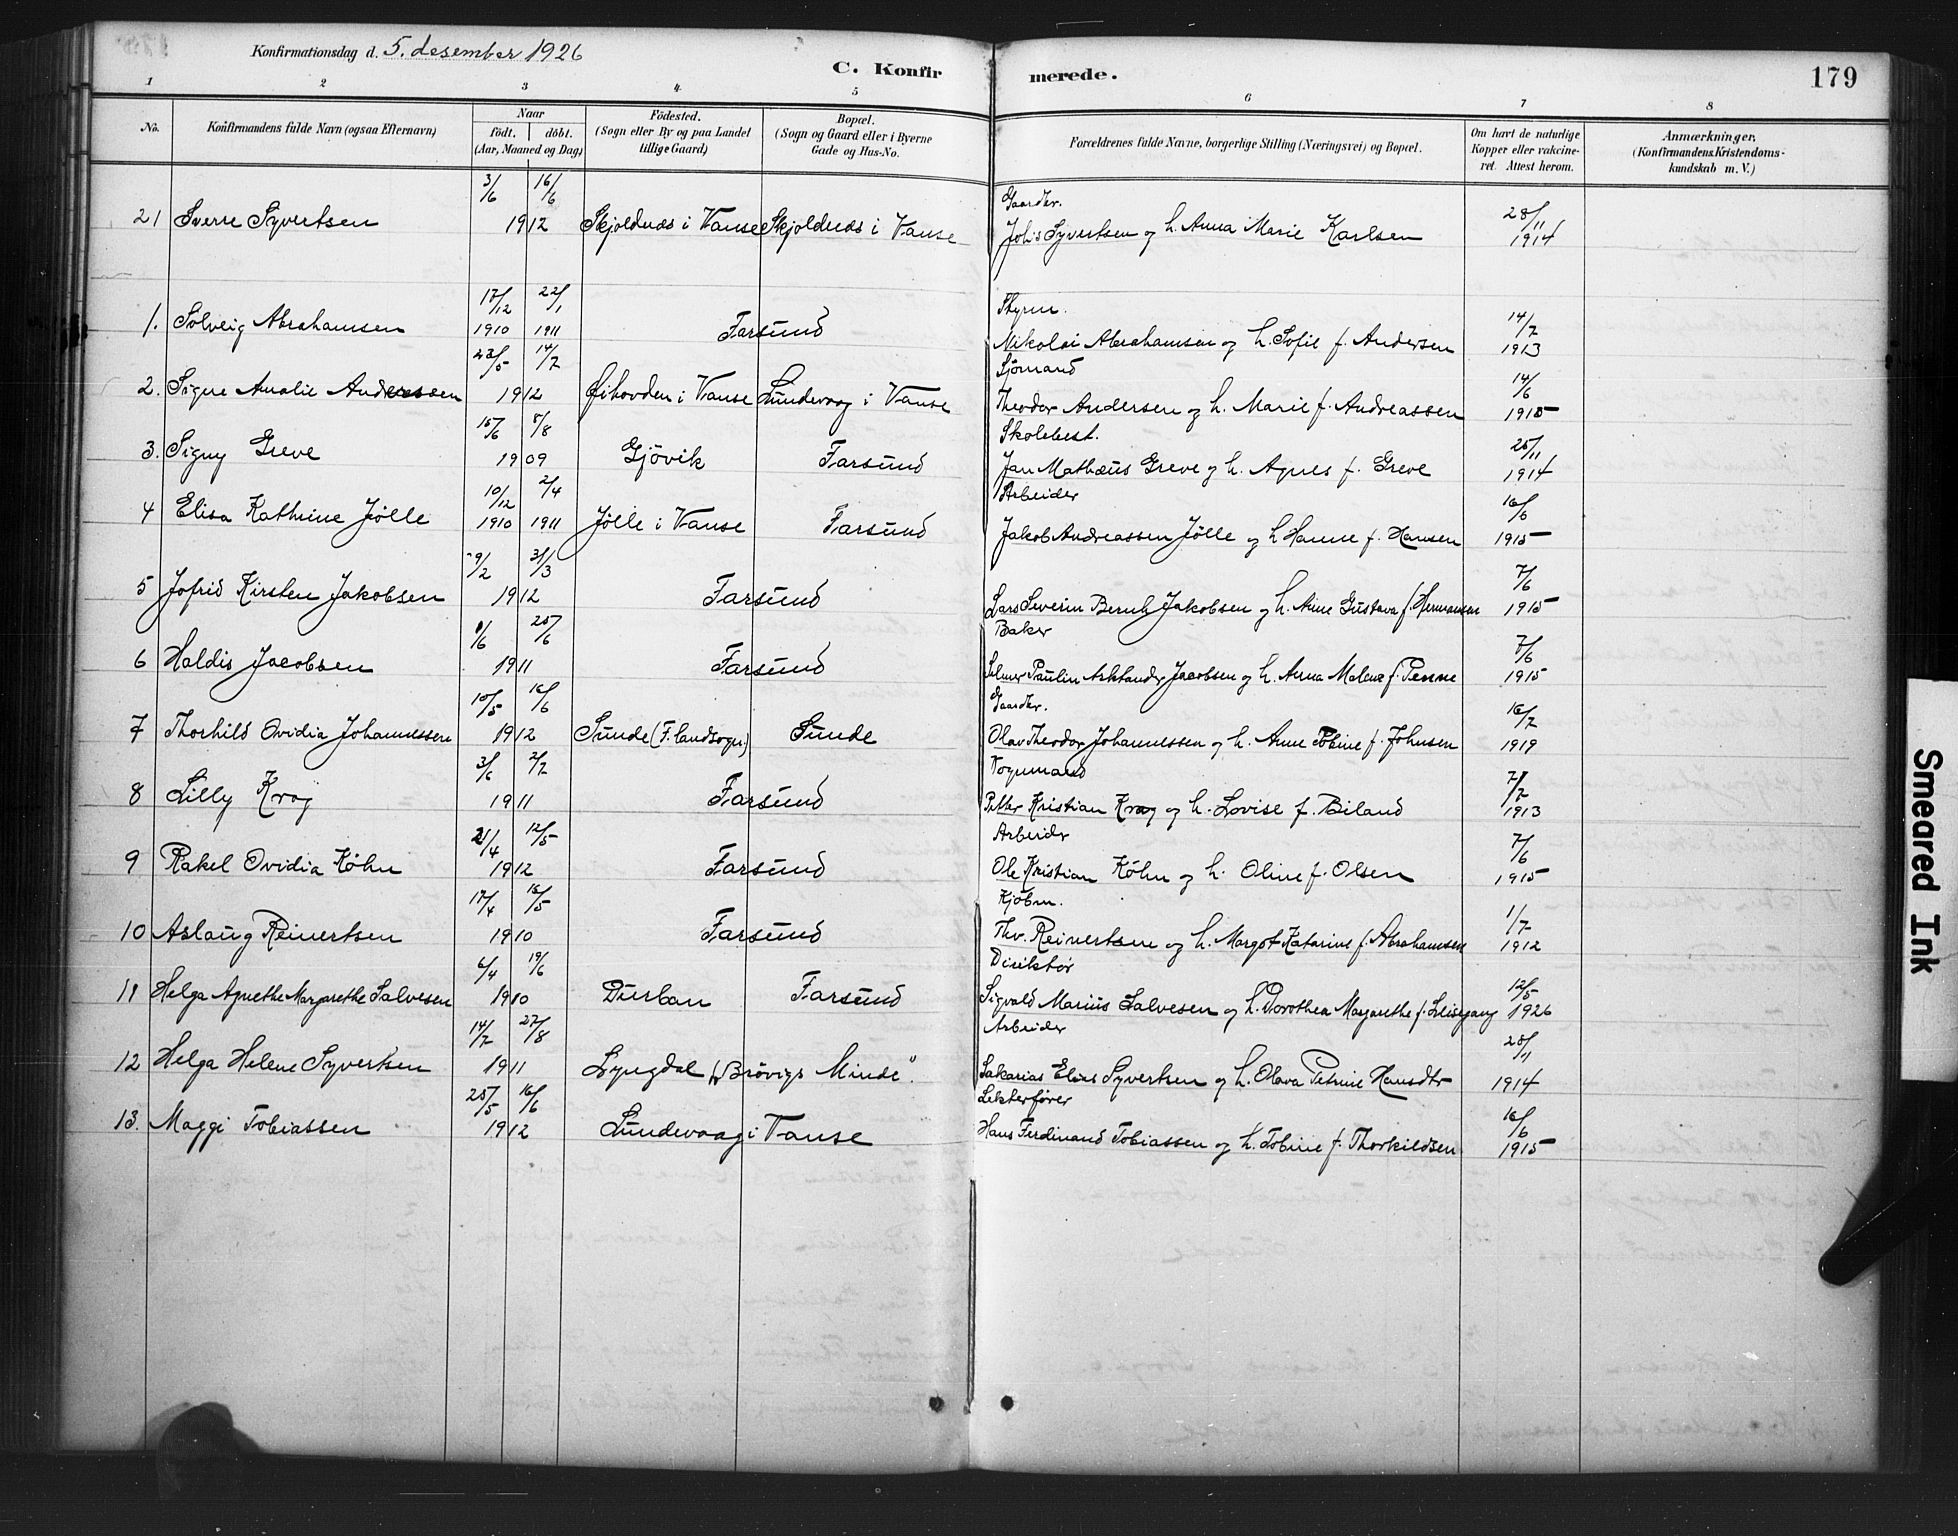 Konfirmationsdag d. 5. desember 1926
C. Konfirmerede.
179
1 2 3 4 5 6 7 8
No.
Konfirmandens fulde Navn (ogsaa Efternavn)
Naar
födt. döbt.
(Aar, Maaned og Dag)
Födested.
(Sogn eller By og paa Landet
tillige Gaard)
Bopæl.
(Sogn og Gaard eller i Byerne
Gade og Hus-No.
Forældrenes fulde Navne, borgerlige Stilling (Næringsvei) og Bopæl.
Om havt de naturlige
Kopper eller vakcine-
ret. Attest herom.
Anmærkninger,
(Konfirmandens Kristendoms-
kundskab m. V.)
3/6 16/6 Gaardbr. 28/11
21 Sverre Syvertsen 1912 Skjoldnæs i Vanse Skjoldnæs i Vanse Johs Syvertsen og h. Anna Marie Karlsen 1914
17/12 22/1 Styrm. 14/7
1. Solveig Abrahamsen 1910 1911 Farsund Nikolai Abrahamsen og h. Sofie f. Andersen 1913
23/5 14/7 Sjømand 14/6
2. Signe Amalie Andersen 1912 Øihovden i Vanse Lundevaag i Vanse Theodor Andersen og h. Marie f. Andreassen 1915
15/6 8/8 Skolebest. 25/11
3. Signy Greve 1909 Gjövik Farsund Jan Mathæus Greve og h. Agnes f. Greve 1914
10/12 2/4 Arbeider 16/6
4 Elisa Kathrine Jølle 1910 1911 Jølle i Vanse Farsund Jakob Andreassen Jølle og h Hanne f. Hansen 1915
9/2 31/3 7/6
5 Jofrid Kirsten Jakobsen 1912 Farsund Lars Severin Bernh Jakobsen og h. Anne Gustava f. Hermansen 1915
1/6 25/6 Baker 7/6
6 Haldis Jacobsen 1911 Farsund Paulin Jacobsen og h. Anna Malene f. 1915
10/5 16/6 Gaardbr. 16/7
7 Thorhild Ovidia Johannessen 1912 Sunde (F. landsogn) Sunde Olav Theodor Johannessen og h. Anne Tobine f. Johnsen 1919
3/6 2/7 Vognmand 7/7
8 Lilly Krog 1911 Farsund Petter Kristian Krog og h. Lovise f. Biland 1913
21/4 12/5 Arbeider 7/6
9 Rakel Ovidia Köhn 1912 Farsund Ole Kristian Köhn og h. Oline f. Olsen 1915
17/4 15/5 Kjöbm. 1/7
10 Aslaug Reinertsen 1910 Farsund Thv. Reinertsen og h. Margot Katarine f. Abrahamsen 1912
6/4 19/6 Direktør 12/5
11 Helga Agnethe Margarethe Salvesen 1910 Durban Farsund Sigvald Marius Salvesen og h. Dorothea Margarethe f. Leisegang 1926
14/7 27/8 Arbeider 28/11
12 Helga Helene Syvertsen 1911 Lyngdal „Brövigs Minde". Sakarias Elias Syvertsen og h. Olava Petrine Hansdtr 1914
25/5 16/6 Lekterfører 16/6
13. Maggi Tobiassen 1912 Lundevaag i Vanse Hans Ferdinand Tobiassen og h. Tobine f. Thorkildsen 1915
Smeared Ink